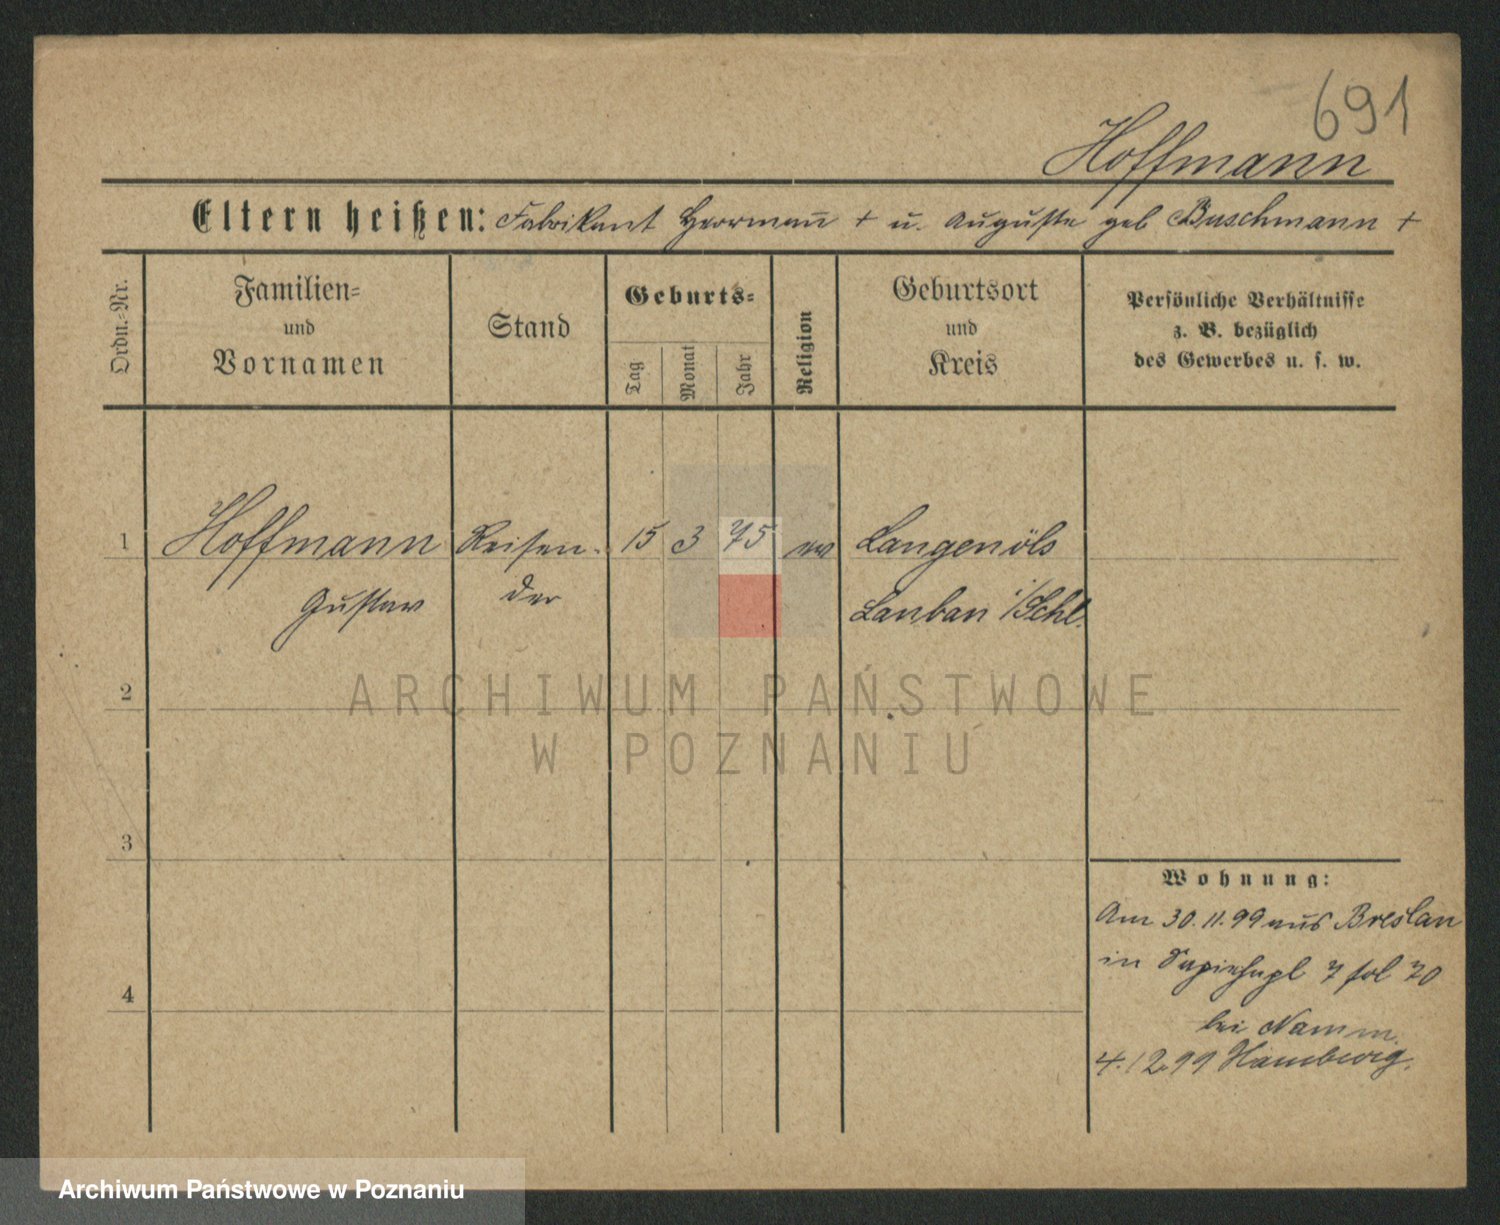 691
Hoffmann
Eltern heißen: Fabrikant Herrmann + u. Auguste geb Buschmann +
Ordn.-Nr.
Familien-
und
Vornamen
Stand
Geburts-
Tag
Monat
Jahr
Religion
Geburtsort
und
Kreis
Persönliche Verhältnisse
z. B. bezüglich
des Gewerbes u. s. w.
1 Hoffmann Reisen- 15 3 75 ev Langenöls
Gustav der Lauban i/Schl.
2
ARCHIWUM PAŃSTWOWE
W POZNANIU
3
Wohnung:
Am 30.11.99 aus Breslau
4
in Sapiehapl 7 fol 70
bei Namm.
4.12.99 Hamburg.
Archiwum Państwowe w Poznaniu